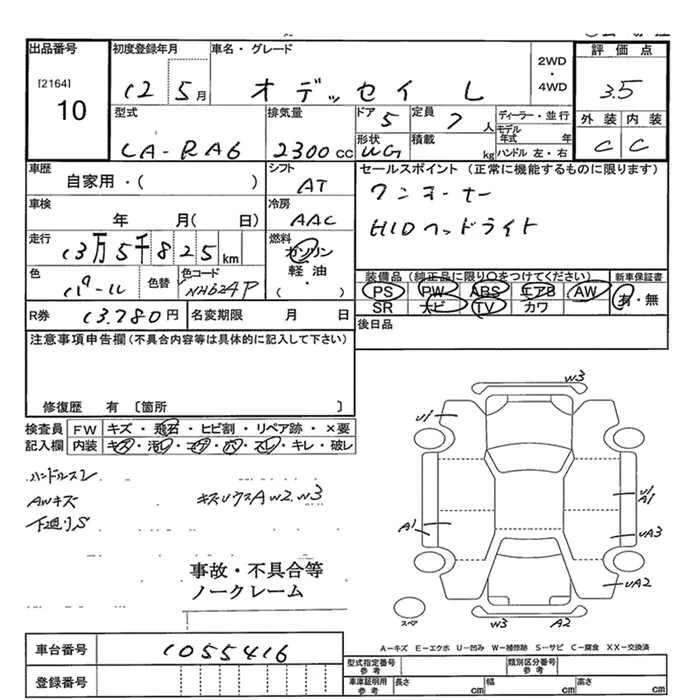 出品番号
[2164]
10
初度登録年月
12 5月
車名・グレード
オデッセイ L
2WD
・
4WD
評価点
3.5
外装 内装
C C
型式
LA-RA6
排気量
2300cc
ドア
5
定員
7人
ディーラー・並行
モデル年式 年
ハンドル 左・右
形状
WG
積載
kg
車歴
自家用・( )
シフト
AT
セールスポイント (正常に機能するものに限ります)
ワンオーナー
HIDヘッドライト
車検
年 月( 日)
冷房
AAC
走行
13万5千825km
燃料
ガソリン
軽油
・( )
色
パール
色替
色コード
NH624P
装備品(純正品に限り○をつけてください)
新車保証書
PS PW ABS エアB AW
有・無
SR ナビ TV カワ
R券
13.780円
名変期限 月 日
後日品
注意事項申告欄(不具合内容等は具体的に記入して下さい)
修復歴 有 〔箇所 〕
検査員
記入欄
FW キズ・飛石・ヒビ割・リペア跡・×要
内装 キズ・汚レ・コゲ・穴・スレ・キレ・破レ
ハンドルスレ
AWキズ
下廻りS
キズUウスA W2.W3
事故・不具合等
ノークレーム
W3
U1
U1
A1
A1
UA3
UA2
W3
A2
スペア
A-キズ E-エクボ U-凹み W-補修跡 S-サビ C-腐食 XX-交換済
車台番号
1055416
登録番号
型式指定番号
参考
類別区分番号
参考
車庫証明用
参考
長さ cm
幅 cm
高さ cm